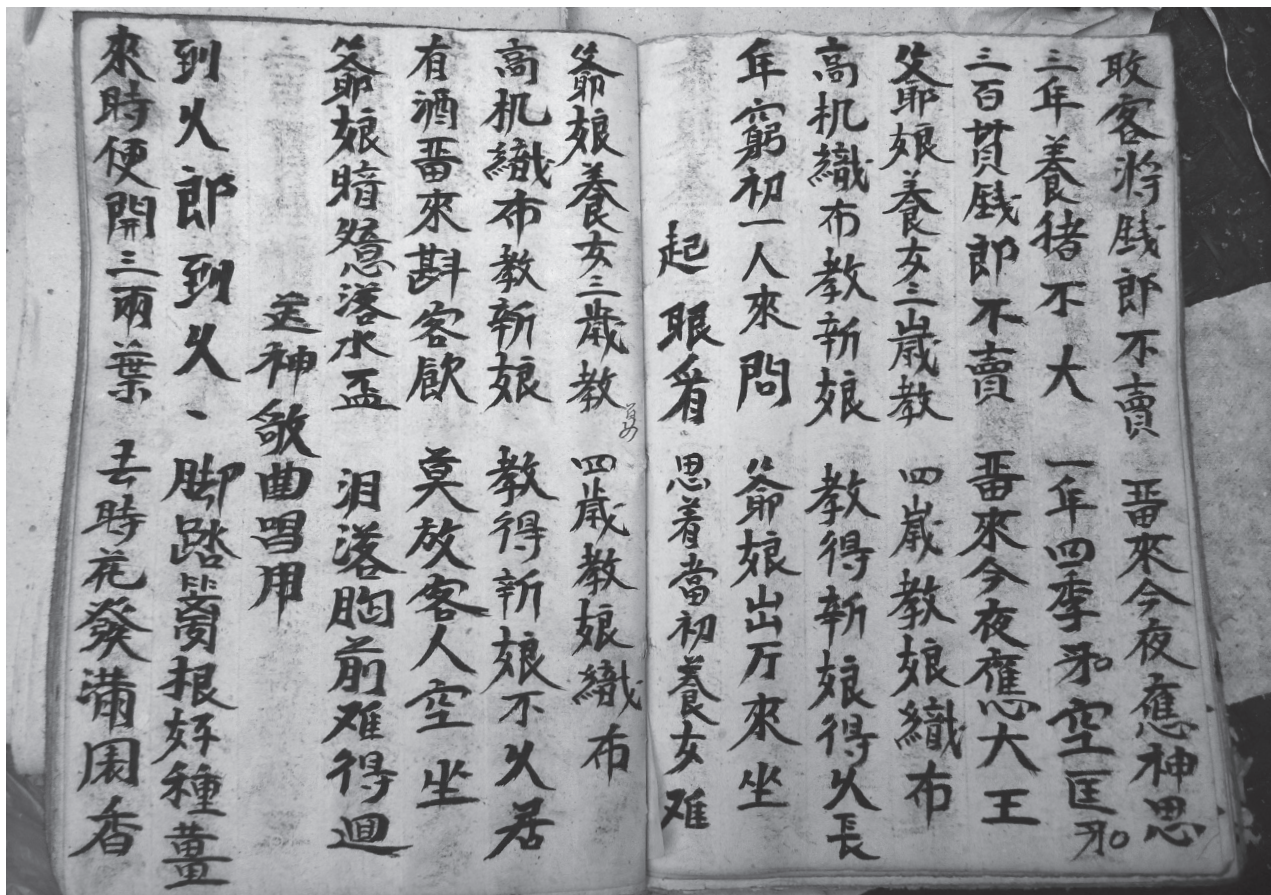 收客將錢郎不賣 畱來今夜應神思
三年養猪不大 一年四季空匡
三百貫錢郎不賣 畱來今夜應大王
爺娘養女三歲教 四歲教娘織布
高机織布教新娘 教得新娘得久長
年窮初一人來問 爺娘出厅來坐
起眼看 思着當初養女难
爺娘養女三歲教 四歲教娘織布
高机織布教新娘 教得新娘不久居
有酒畱來斟客飲 莫放客人空坐
爺娘暗落水盃 泪落胸前难得迴
送神歌曲唱用
到久郎到久、 脚踏根好種薑
來時便開三兩葉 去時花發满園香